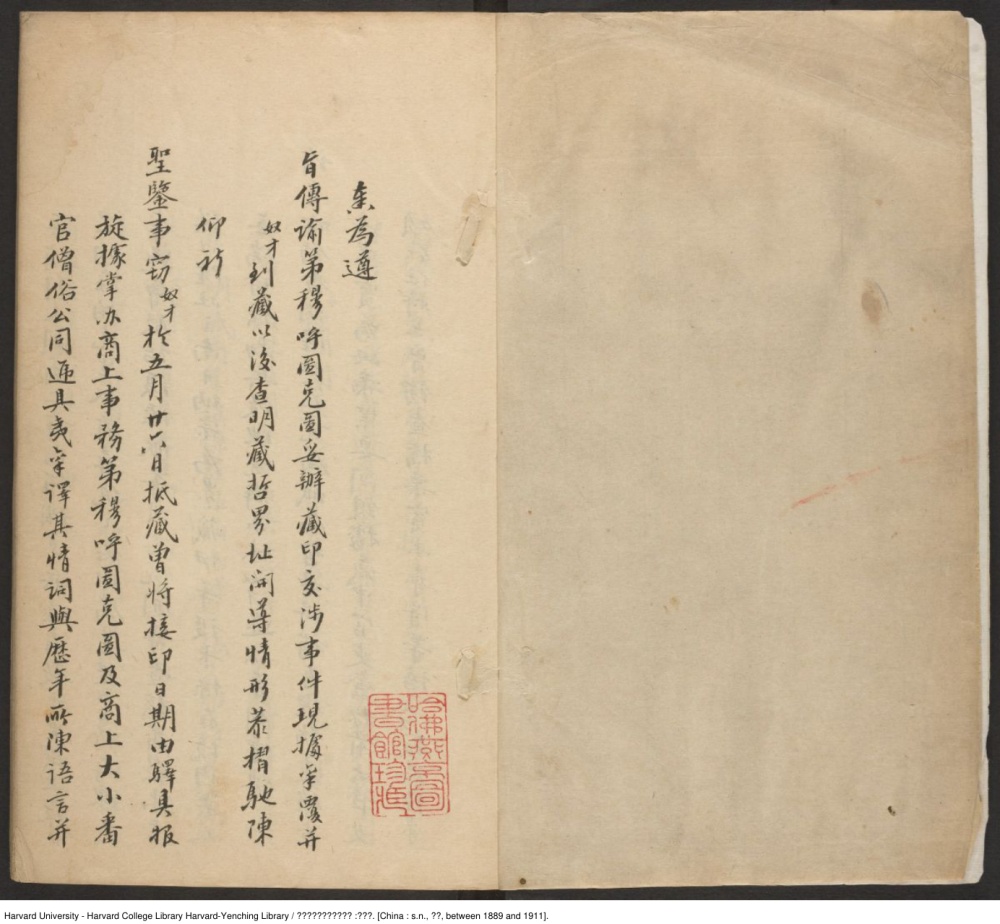 奏為遵
旨傳諭第穆呼圖克圖妥辦藏印交涉事件現據稟覆并
奴才到藏以後查明藏哲界址開導情形恭摺馳陳
仰祈
聖鑒事竊奴才於五月廿六日抵藏曾將接印日期由驛具報
旋據掌办商上事務第穆呼圖克圖及商上大小番
官僧俗公同遞具夷稟譯其情詞與歷年所陳語言并
哈佛燕京圖
書館珍藏
Harvard University - Harvard College Library Harvard-Yenching Library / ??????????? :???. [China : s.n., ??, between 1889 and 1911].